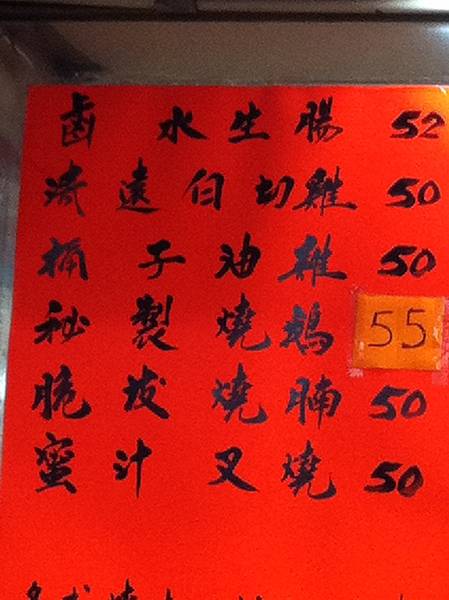 鹵水生腸 52
清遠白切雞 50
桶子油雞 50
秘製燒鵝 55
脆皮燒腩 50
蜜汁叉燒 50